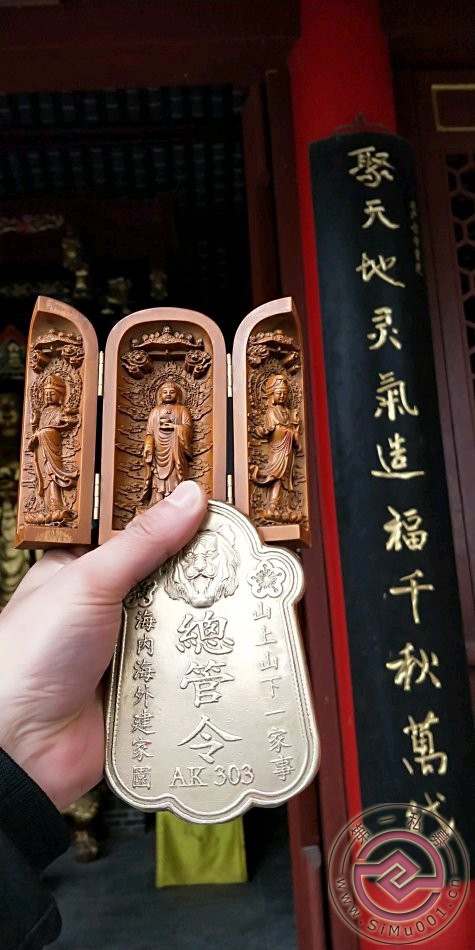 聚天地灵氣造福千秋萬代
山上山下一家事
總管令
海内海外建家園
AK 303
第一社區
www.SiMu001.cn